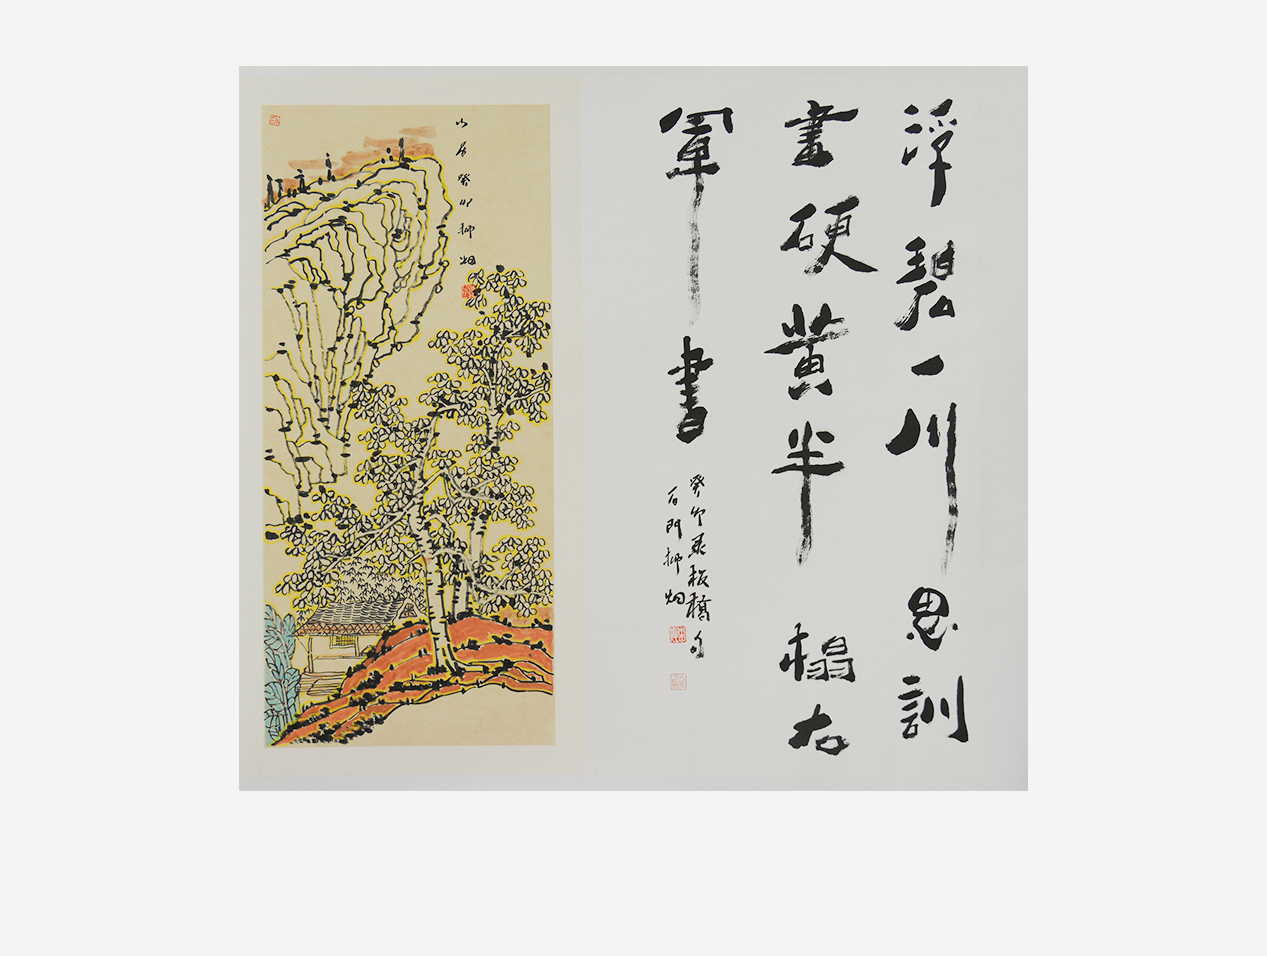 浮碧一川思訓
畫硬黄半榻右
軍書
癸卯录板橋句
石門柳烟
山居癸卯柳烟